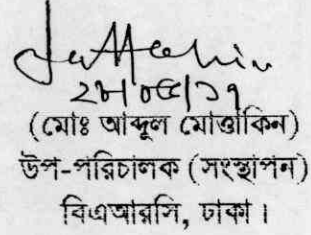 ২৮/০৫/১৭
(মোঃ আব্দুল মোত্তাকিন)
উপ-পরিচালক (সংস্থাপন)
বিএআরসি, ঢাকা।